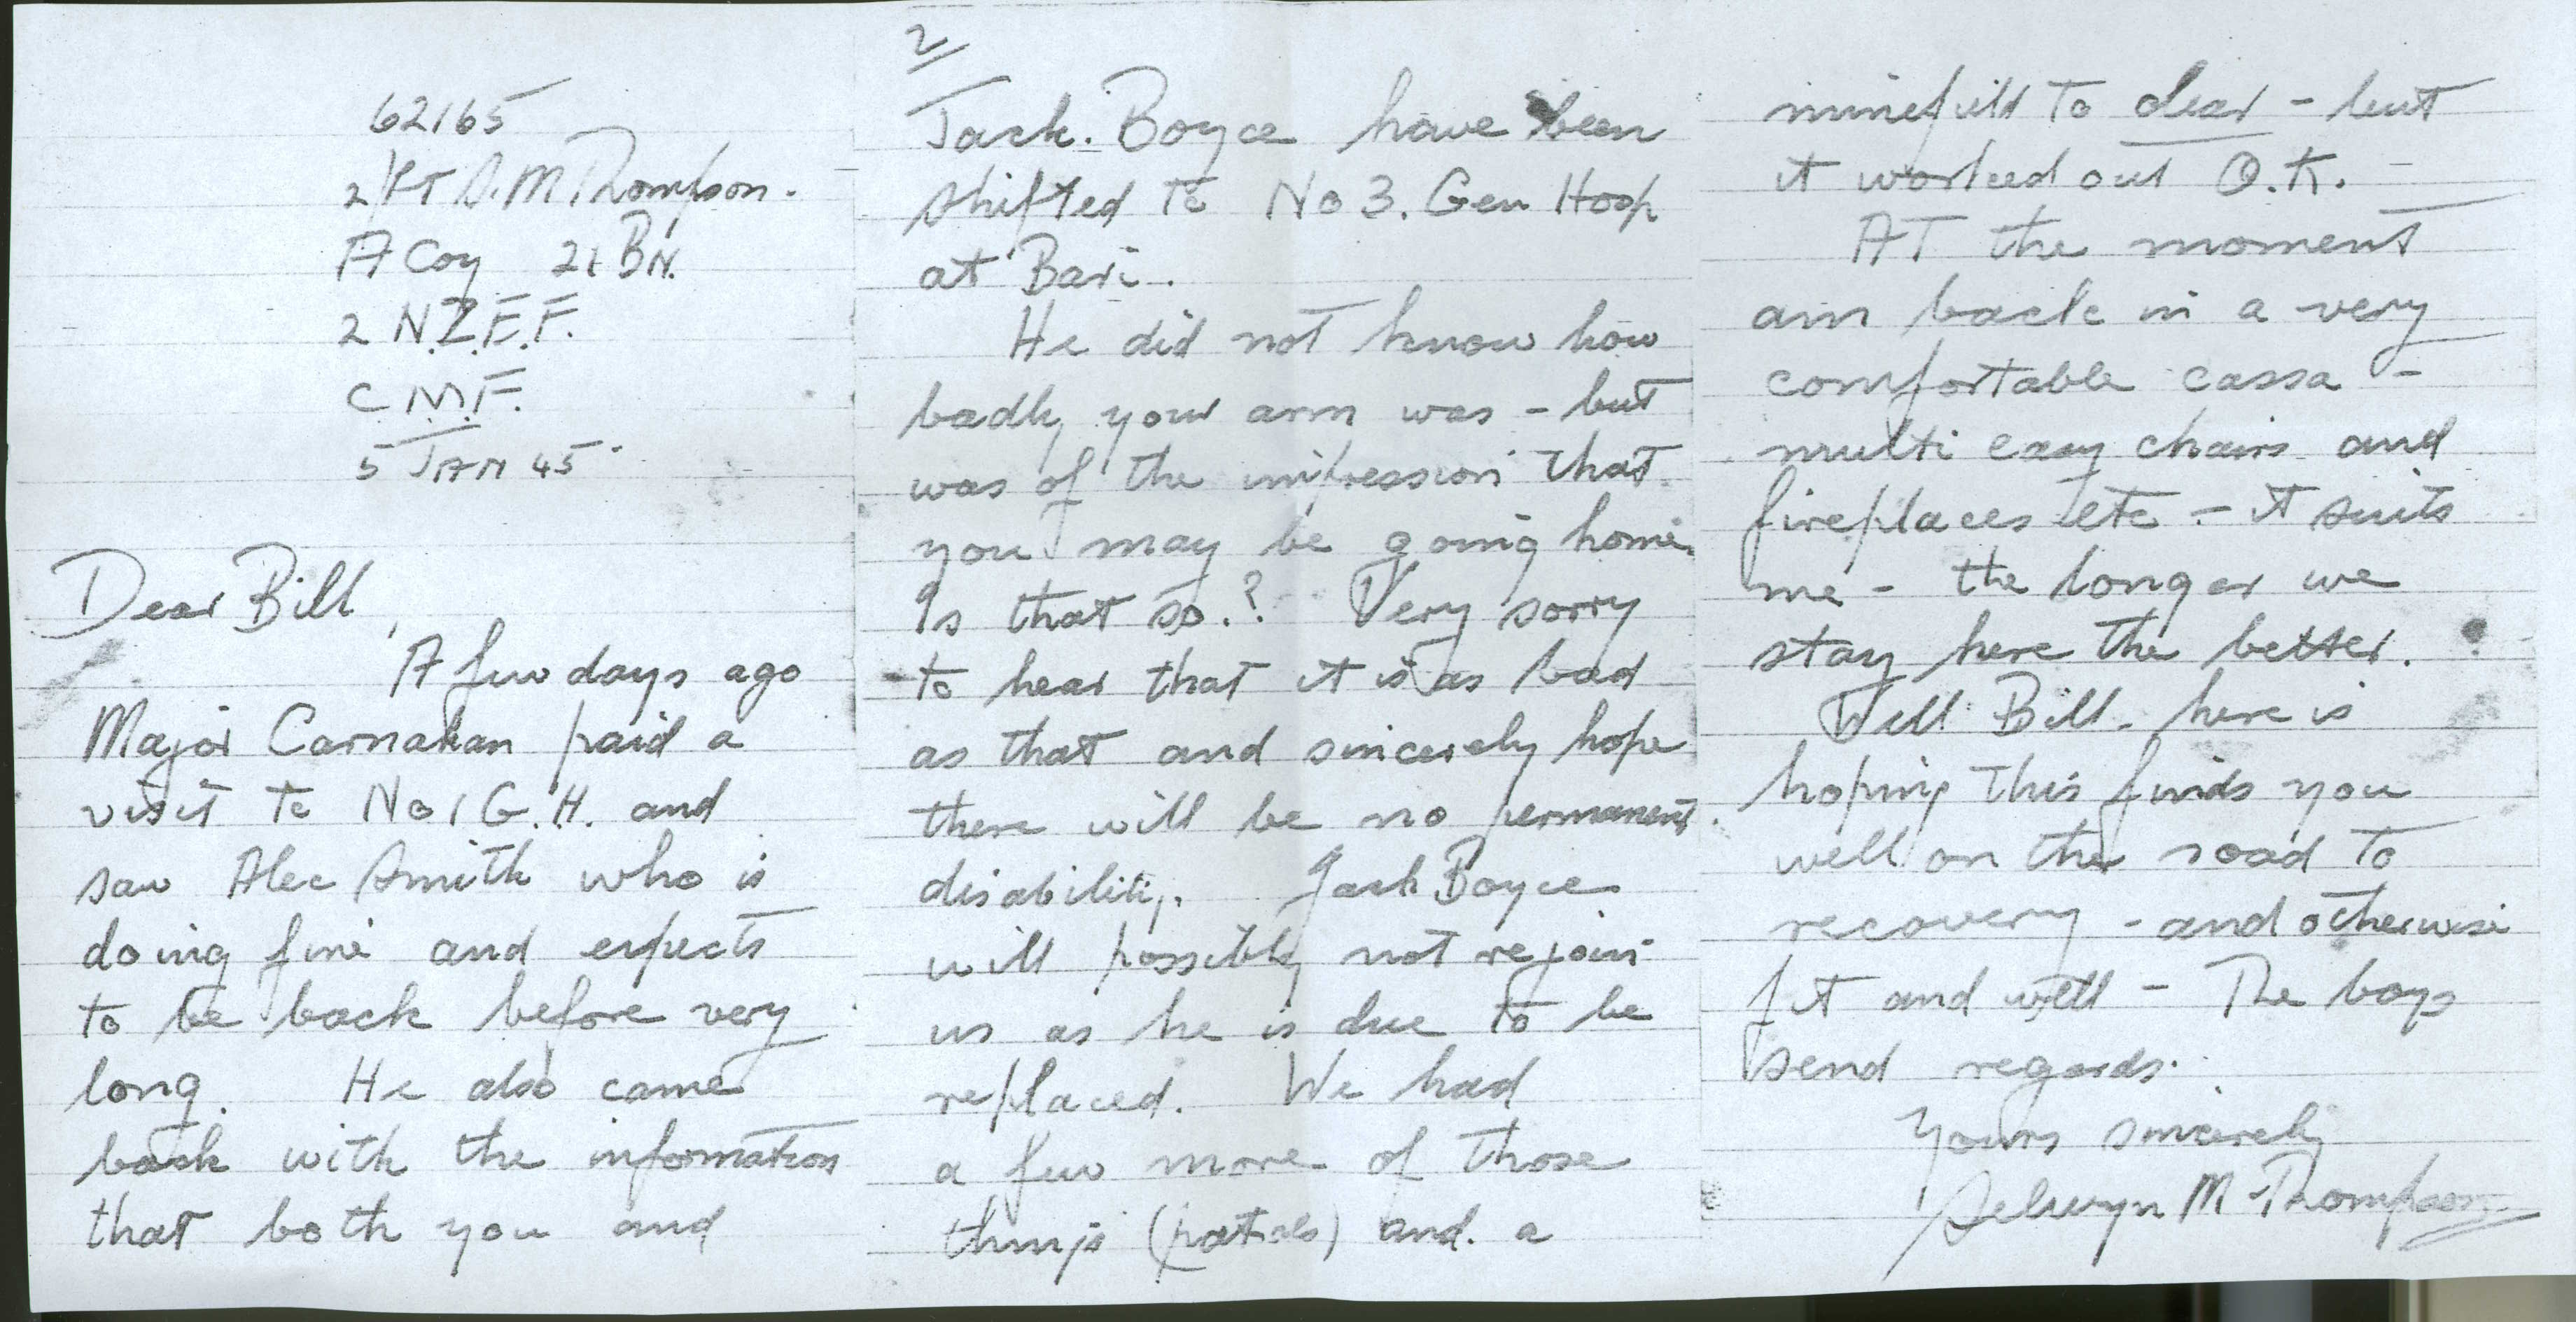 62165
2/LT S.M Thompson.
A Coy 21 BN.
2 N.Z.E.F.
C.M.F.
5 JAN 45
Dear Bill,
A few days ago
Major Carnahan paid a
visit to No 1 G.H. and
saw Alec Smith who is
doing fine and expects
to be back before very
long. He also came
back with the information
that both you and
2
Jack. Boyce have been
shifted to No 3. Gen Hosp
at Bari.
He did not know how
badly your arm was - but
was of the impression that
you may be going home.
Is that so.? Very sorry
to hear that it is as bad
as that and sincerely hope
there will be no permanent
disability. Jack Boyce
will possibly not rejoin
us as he is due to be
replaced. We had
a few more of those
things (patrols) and. a
minefield to clear - but
it worked out O.K.
AT the moment
am back in a very
comfortable cassa -
multi easy chairs and
fireplaces etc - it suits
me - the longer we
stay here the better.
Well Bill - here is
hoping this finds you
well on the road to
recovery - and otherwise
fit and well - The boys
send regards.
Yours sincerely
Selwyn M Thompson.